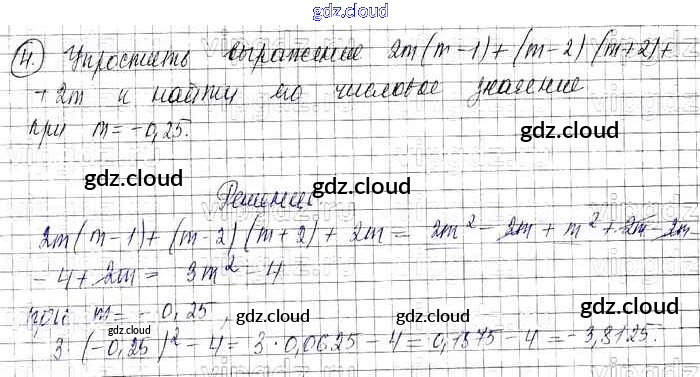 gdz.cloud
gdz.cloud
4. Упростить выражение 2m(m-1)+(m-2)(m+2)+
+2m и найти его числовое значение
при m=-0,25.
gdz.cloud
gdz.cloud
gdz.cloud
Решение
2m(m-1)+(m-2)(m+2)+2m= 2m²-2m+m²+2m-2m
-4+2m= 3m²-4
при m=-0,25,
gdz.cloud
gdz.cloud
gdz.cloud
3·(-0,25)²-4=3·0,0625-4=0,1875-4=-3,8125.